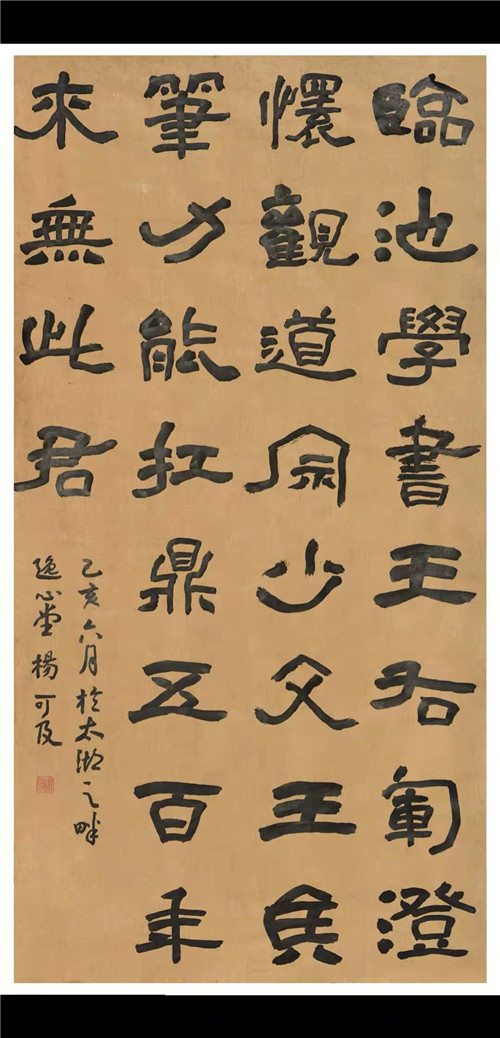 臨池學書王右軍澄
懷觀道宗少文王侯
筆力能扛鼎五百年
來無此君
己亥六月於太湖之畔
逸心堂楊可及